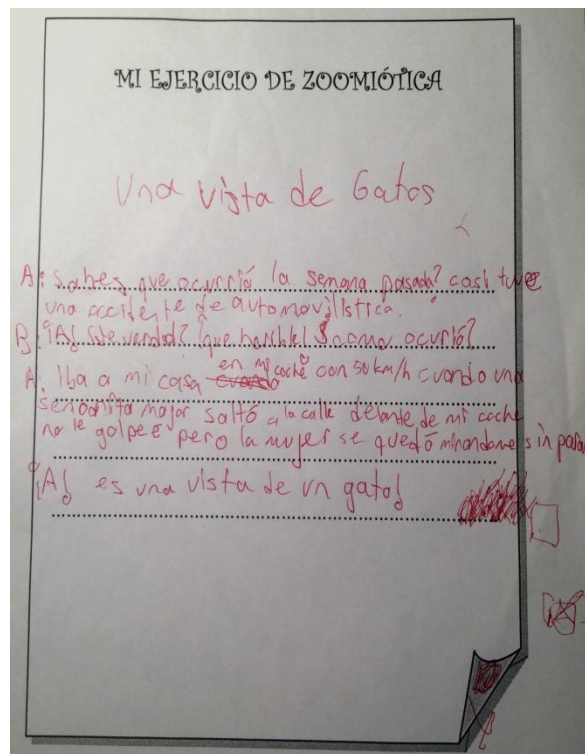 MI EJERCICIO DE ZOOMIÓTICA
Una vista de Gatos
A: Sabes que ocurrió la semana pasada? casi tuve
una accidente de automovilistica.
B: ¡A! de verdad? que horrible! como ocurió?
A. Iba a mi casa en mi coche con 50 km/h cuando una
señoarita major saltó a la calle delante de mi coche
no le golpeé pero la mujer se quedó mirandome sin parar
¡A! es una vista de un gato!